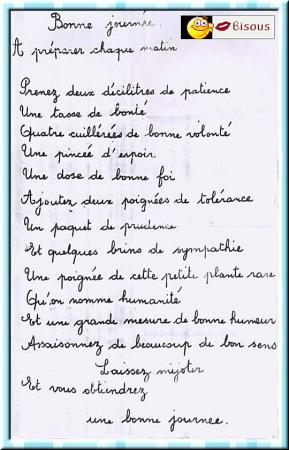 Bonne journée.
Bisous
A préparer chaque matin
Prenez deux décilitres de patience
Une tasse de bonté
Quatre cuillérées de bonne volonté
Une pincée d'espoir
Une dose de bonne foi
Ajoutez deux poignées de tolérance
Un paquet de prudence
Et quelques brins de sympathie
Une poignée de cette petite plante rare
Qu'on nomme humanité
Et une grande mesure de bonne humeur
Assaisonnez de beaucoup de bon sens
Laissez mijoter
Et vous obtiendrez
une bonne journée.